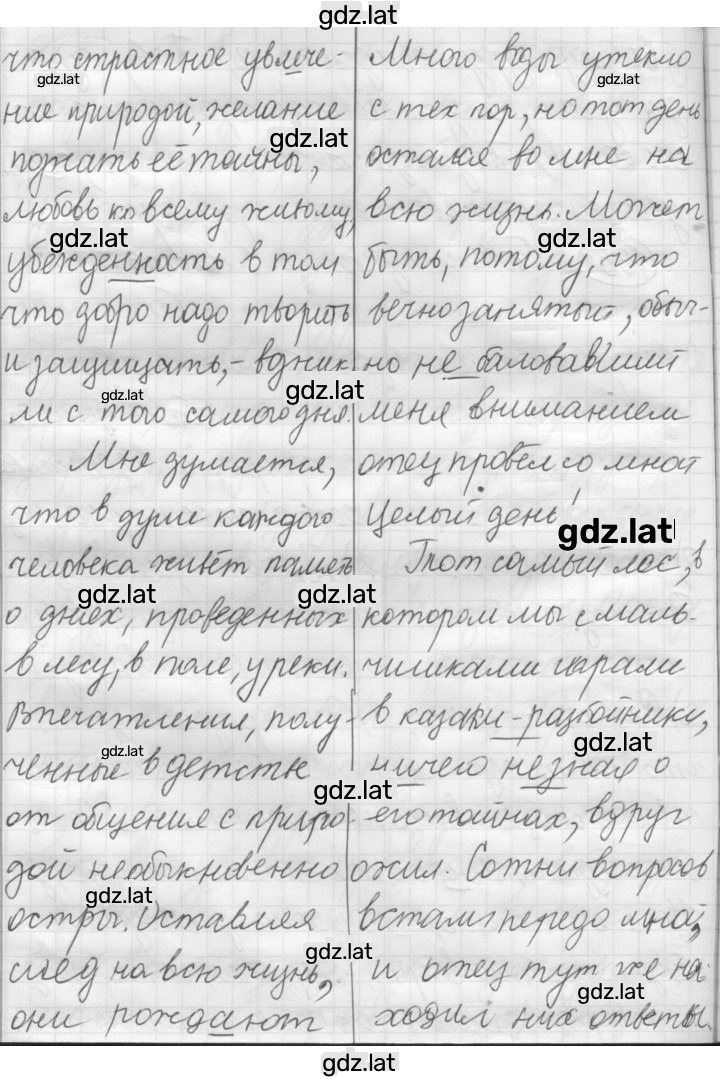 gdz.lat
что страстное увлече-
ние природой, желание
познать её тайны,
любовь ко всему живому,
убежденность в том
что добро надо творить
и защищать, - возник
ли с того самого дня.
Мне думается,
что в душе каждого
человека живёт память
о днях, проведенных
в лесу, в поле, у реки.
Впечатления, полу-
ченные в детстве
от общения с приро-
дой необыкновенно
остры. Оставляя
след на всю жизнь,
они рождают
Много воды утекло
с тех пор, но тот день
остался во мне на
всю жизнь. Может
быть, потому, что
вечно занятый, обыч-
но не баловавший
меня вниманием
отец провёл со мной
целый день!
Тот самый лес, в
котором мы с маль-
чишками играли
в казаки-разбойники,
ничего не зная о
его тайнах, вдруг
ожил. Сотни вопросов
встали передо мной,
и отец тут же на-
ходил них ответы.
gdz.lat